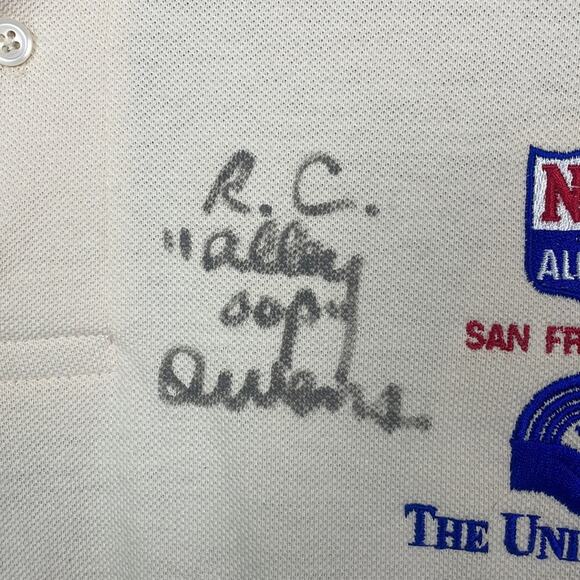 R. C.
"alley
oop"
Owens
N
AL
SAN FR
THE UNI